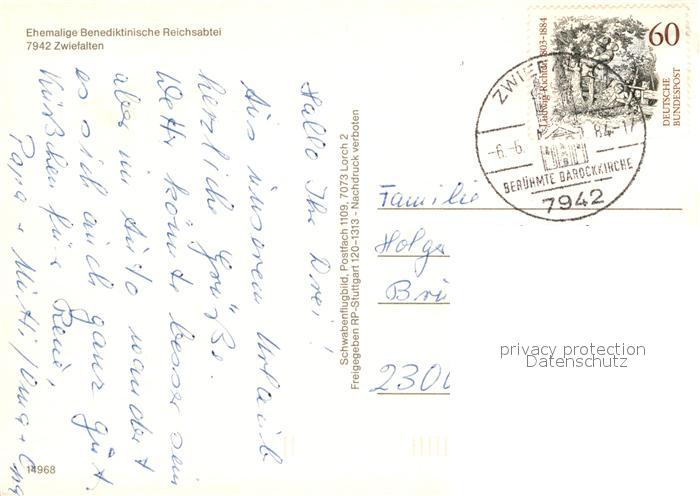 Ehemalige Benediktinische Reichsabtei
7942 Zwiefalten
Hallo Ihr Drei!
Aus unserem Urlaub
herzliche Grüße.
Wettr könnte besser sein
aber im Auto wandert
es sich auch ganz gut.
Küßchen für René,
Papa + Mutti / Oma + Opa
14968
Schwabenflugbild, Postfach 1109, 7073 Lorch 2
Freigegeben RP-Stuttgart 120-1313 - Nachdruck verboten
Ludwig Richter 1803-1884
60
DEUTSCHE
BUNDESPOST
ZWIEFALTEN
-6.-6. 84-17
BERÜHMTE BAROCKKIRCHE
7942
Familie
Holge
Brü
2300
privacy protection
Datenschutz